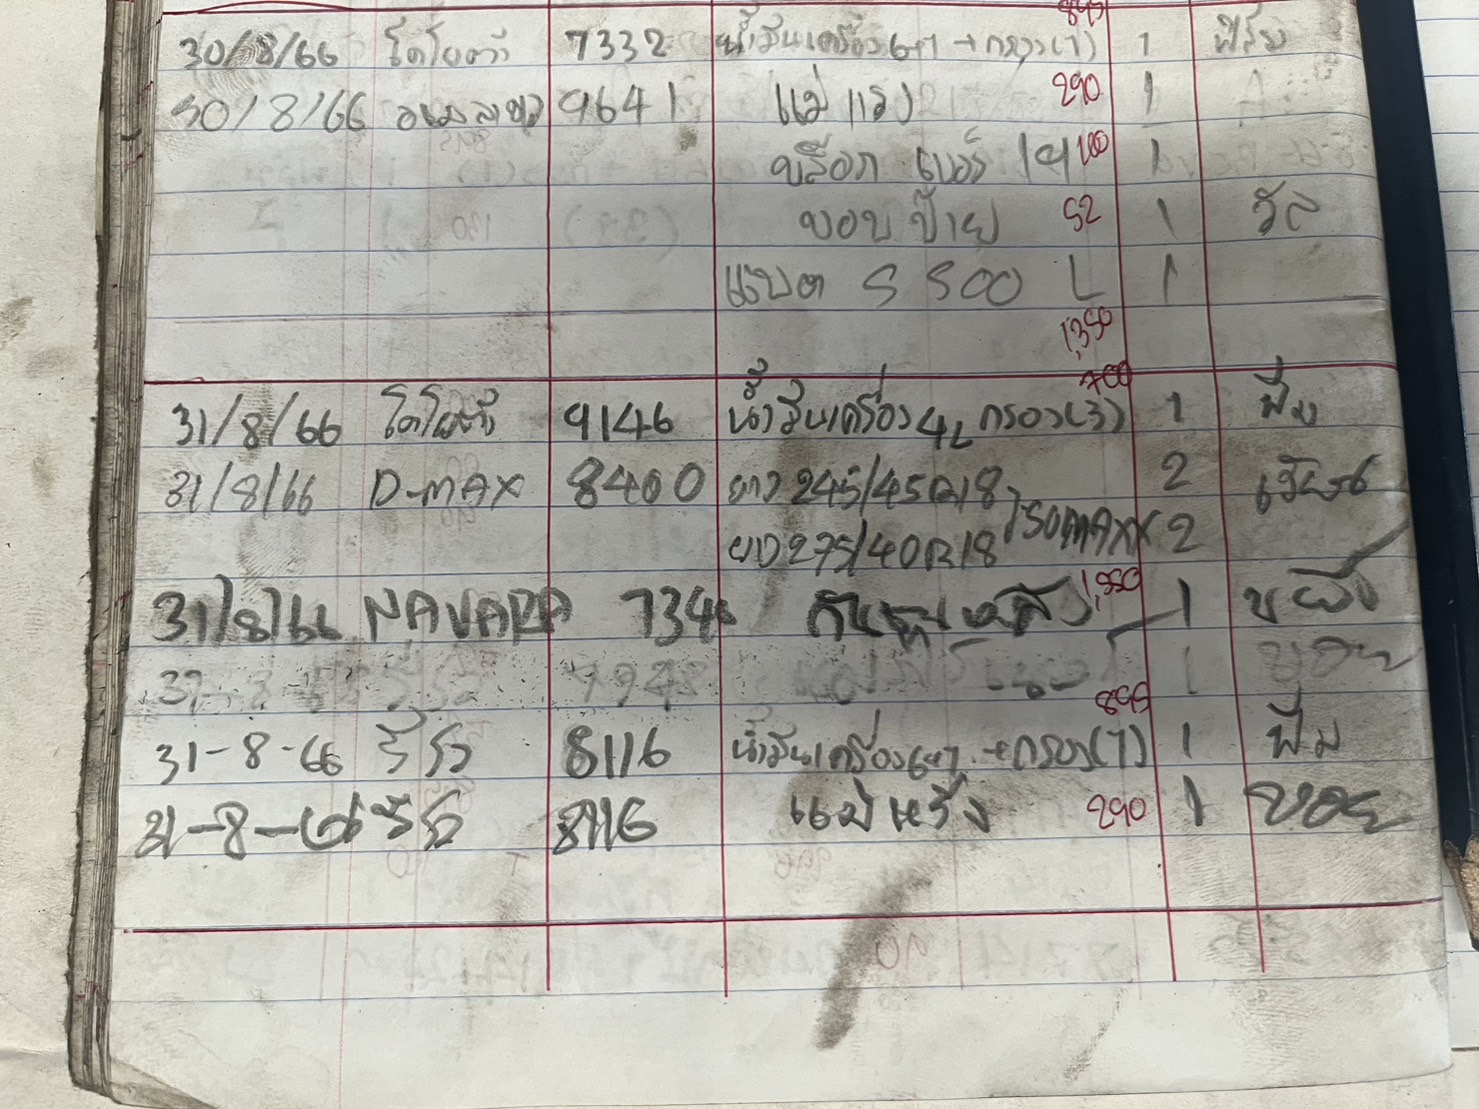 895
30/8/66 โตโยต้า 7332 น้ำมันเครื่อง6+1 +กรอง(7) 1 ฟิล์ม
30/8/66 9641 แม่แรง 290 1
บล็อก เบอร์ 19 100 1
ขอบป้าย 52 1 วัล
แบต S 500 L 1
1,350
700
31/8/66 โตโยต้า 9146 น้ำมันเครื่อง 4L กรอง(3) 1 ฟิม
31/8/66 D-MAX 8400 ยาง 245/45R18 2
ยาง 275/40R18 SOMAXX 2
31/8/66 NAVARA 7346 กันชนหลัง 1,850 1
895
31-8-66 รีโว 8116 น้ำมันเครื่อง6+1 +กรอง(7) 1 ฟิม
31-8-66 รีโว 8116 290 1